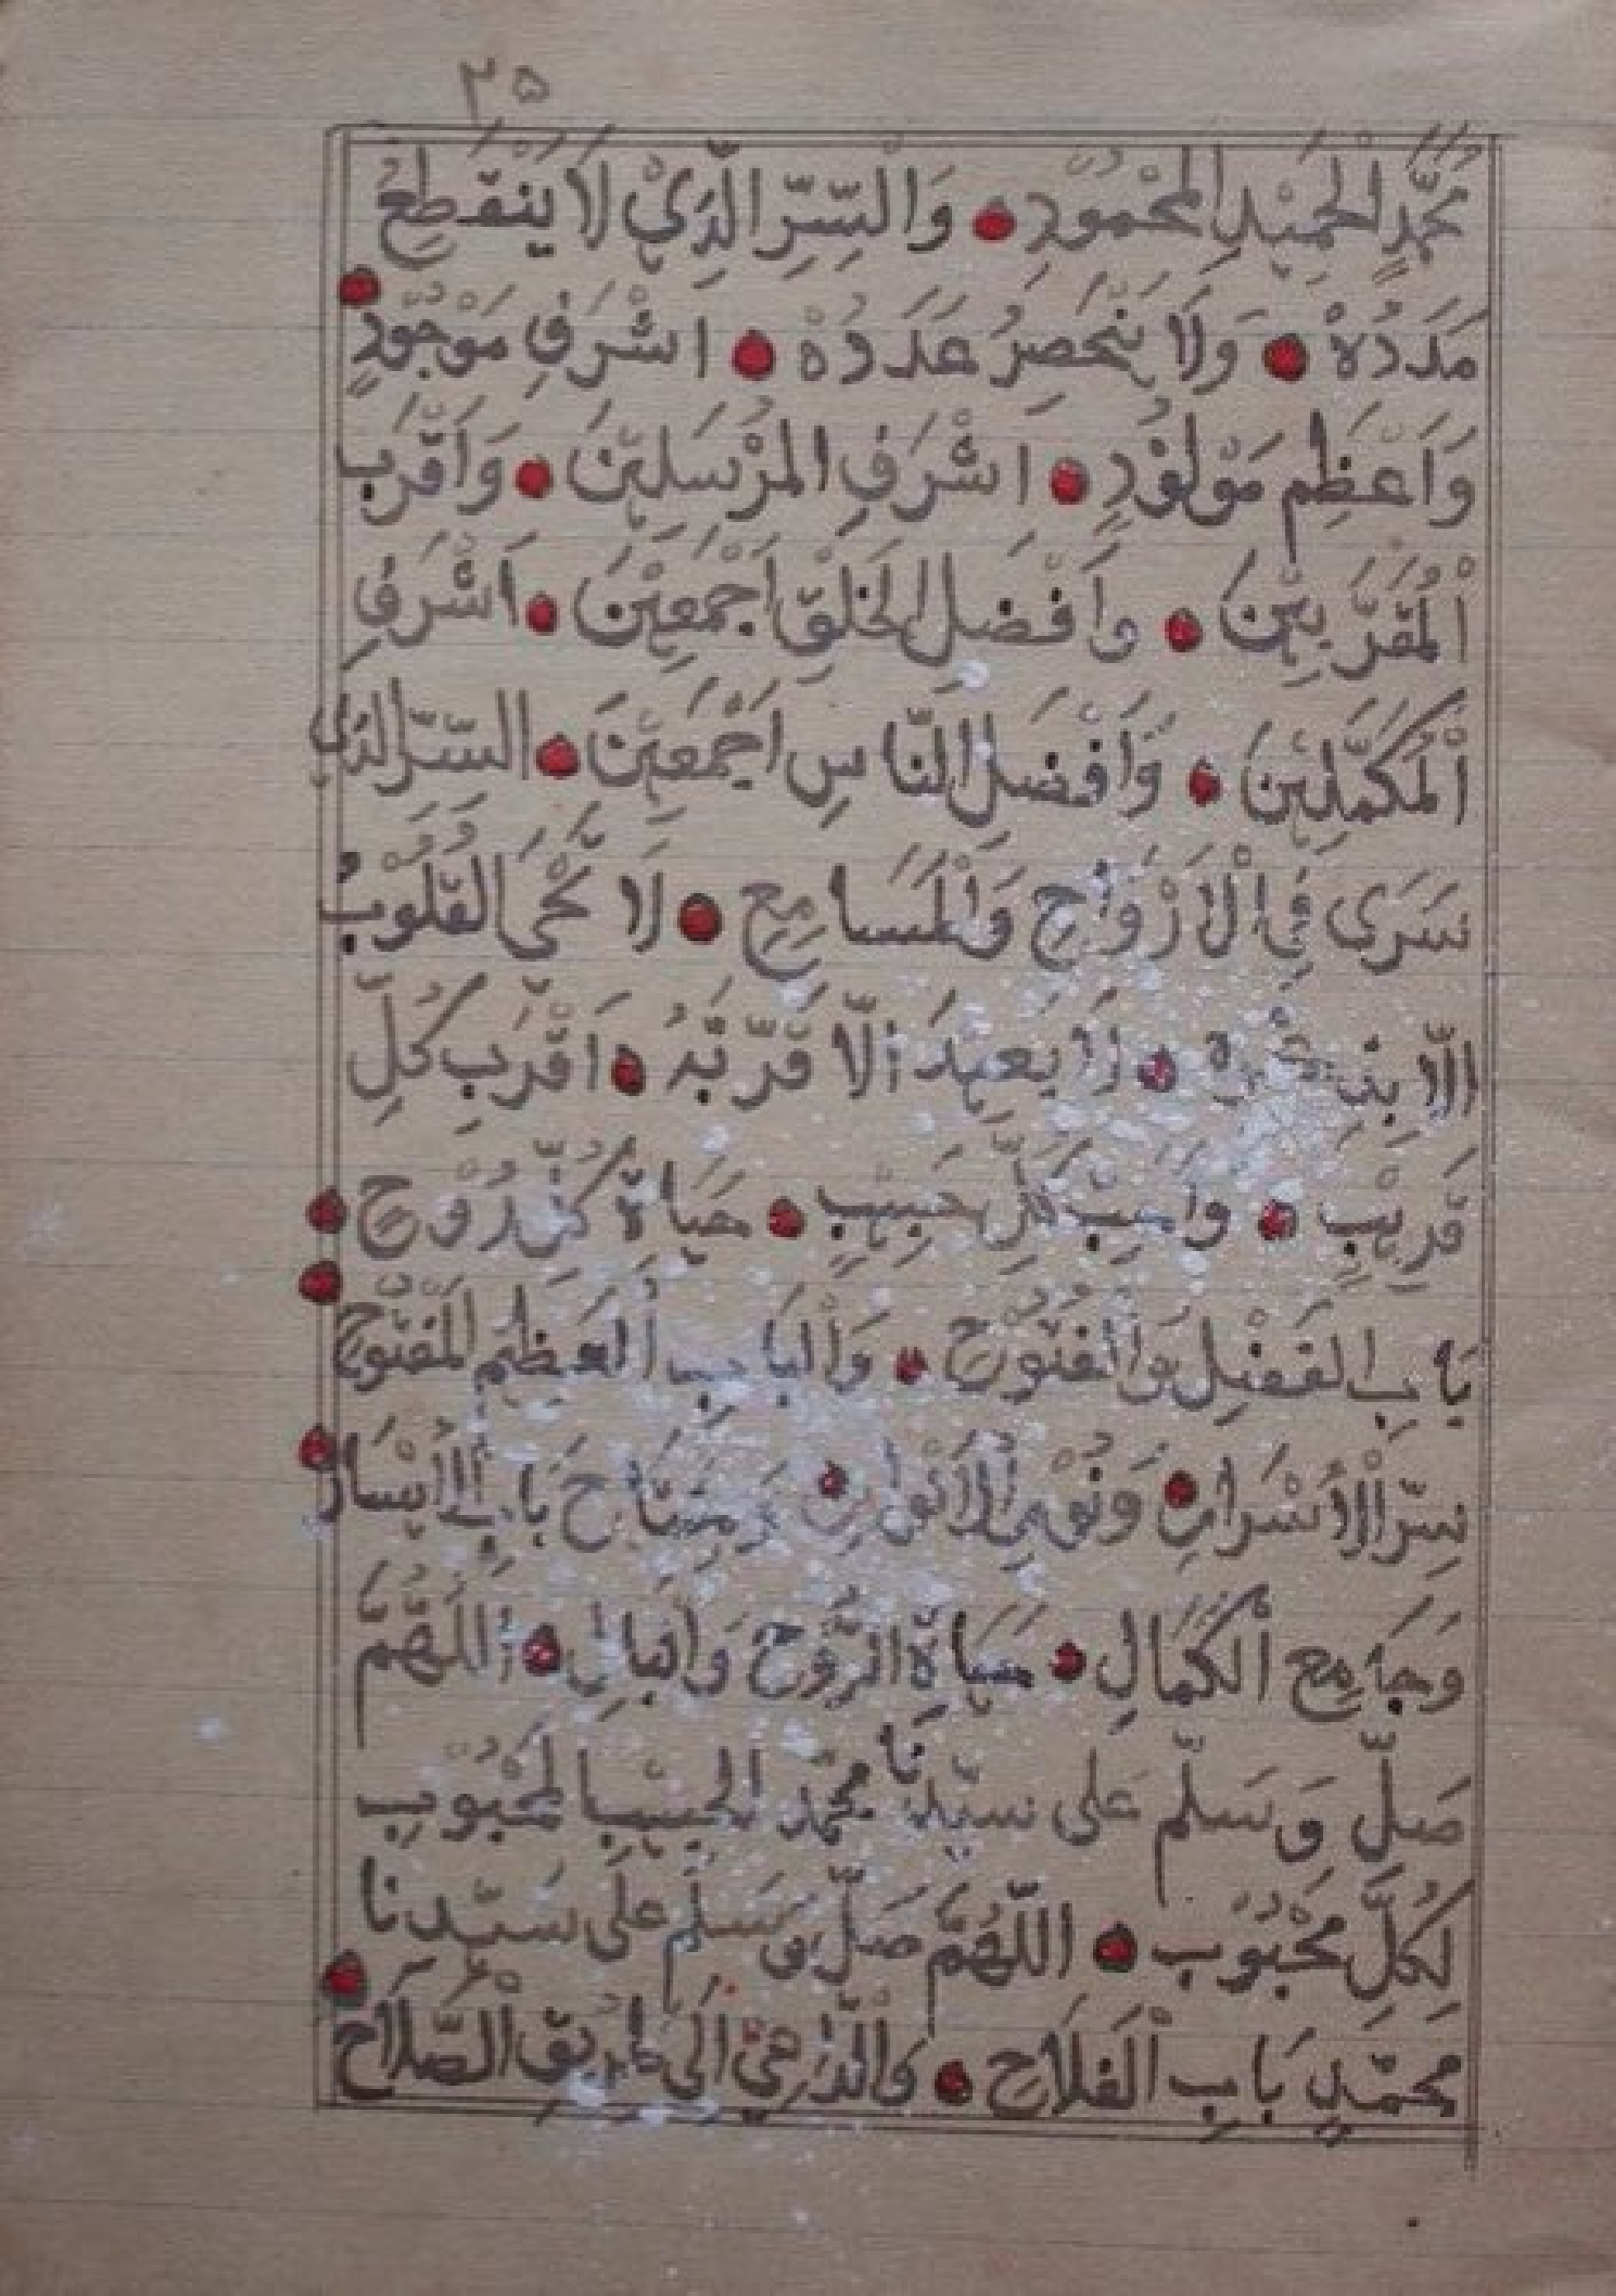 ٢٥
مُحَمَّدٍ الْحَمِيْدِ الْمَحْمُوْدِ ● وَالْسِّرِّ الَّذِيْ لَا يَنْقَطِعُ
مَدَدُهْ ● وَلَا يَنْحَصِرُ عَدَدُهْ ● اَشْرَفِ مَوْجُوْدٍ ●
وَاَعْظَمِ مَوْلُوْدٍ ● اَشْرَفِ الْمُرْسَلِيْنَ ● وَاَقْرَبِ
الْمُقَرَّبِيْنَ ● وَاَفْضَلِ الْخَلْقِ اَجْمَعِيْنَ ● اَشْرَفِ
الْمُكَمَّلِيْنَ ● وَاَفْضَلِ النَّاسِ اَجْمَعِيْنَ ● السِّرِّ الَّذِيْ
سَرَى فِي الْاَرْوَاحِ وَالْمَسَامِعِ ● لَا تَحْيَ الْقُلُوْبُ
اِلَّا ● لَا بَعِيْدَ اِلَّا قَرَّبَهُ ● اَقْرَبِ كُلِّ
قَرِيْبٍ ● وَاَحَبِّ كُلِّ حَبِيْبٍ ● حَيَاةِ كُلِّ رُوْحٍ ●
بَابِ الْفَضْلِ وَالْفُتُوْحِ ● وَالْبَابِ الْعَظِيْمِ الْمَفْتُوْحِ ●
سِرِّ الْاَسْرَارِ ● وَنُوْرِ الْاَنْوَارِ ● وَمِفْتَاحِ بَابِ الْيَسَارِ ●
وَجَامِعِ الْكَمَالِ ● حَيَاةِ الرُّوْحِ وَالْبَالِ ● اَللّٰهُمَّ
صَلِّ وَسَلِّمْ عَلَى سَيِّدِنَا مُحَمَّدٍ الْحَبِيْبِ الْمَحْبُوْبِ
لِكُلِّ مَحْبُوْبٍ ● اَللّٰهُمَّ صَلِّ وَسَلِّمْ عَلَى سَيِّدِنَا
مُحَمَّدٍ بَابِ الْفَلَاحِ ● وَالْدَّاعِيْ اِلَى طَرِيْقِ الصَّلَاحِ ●